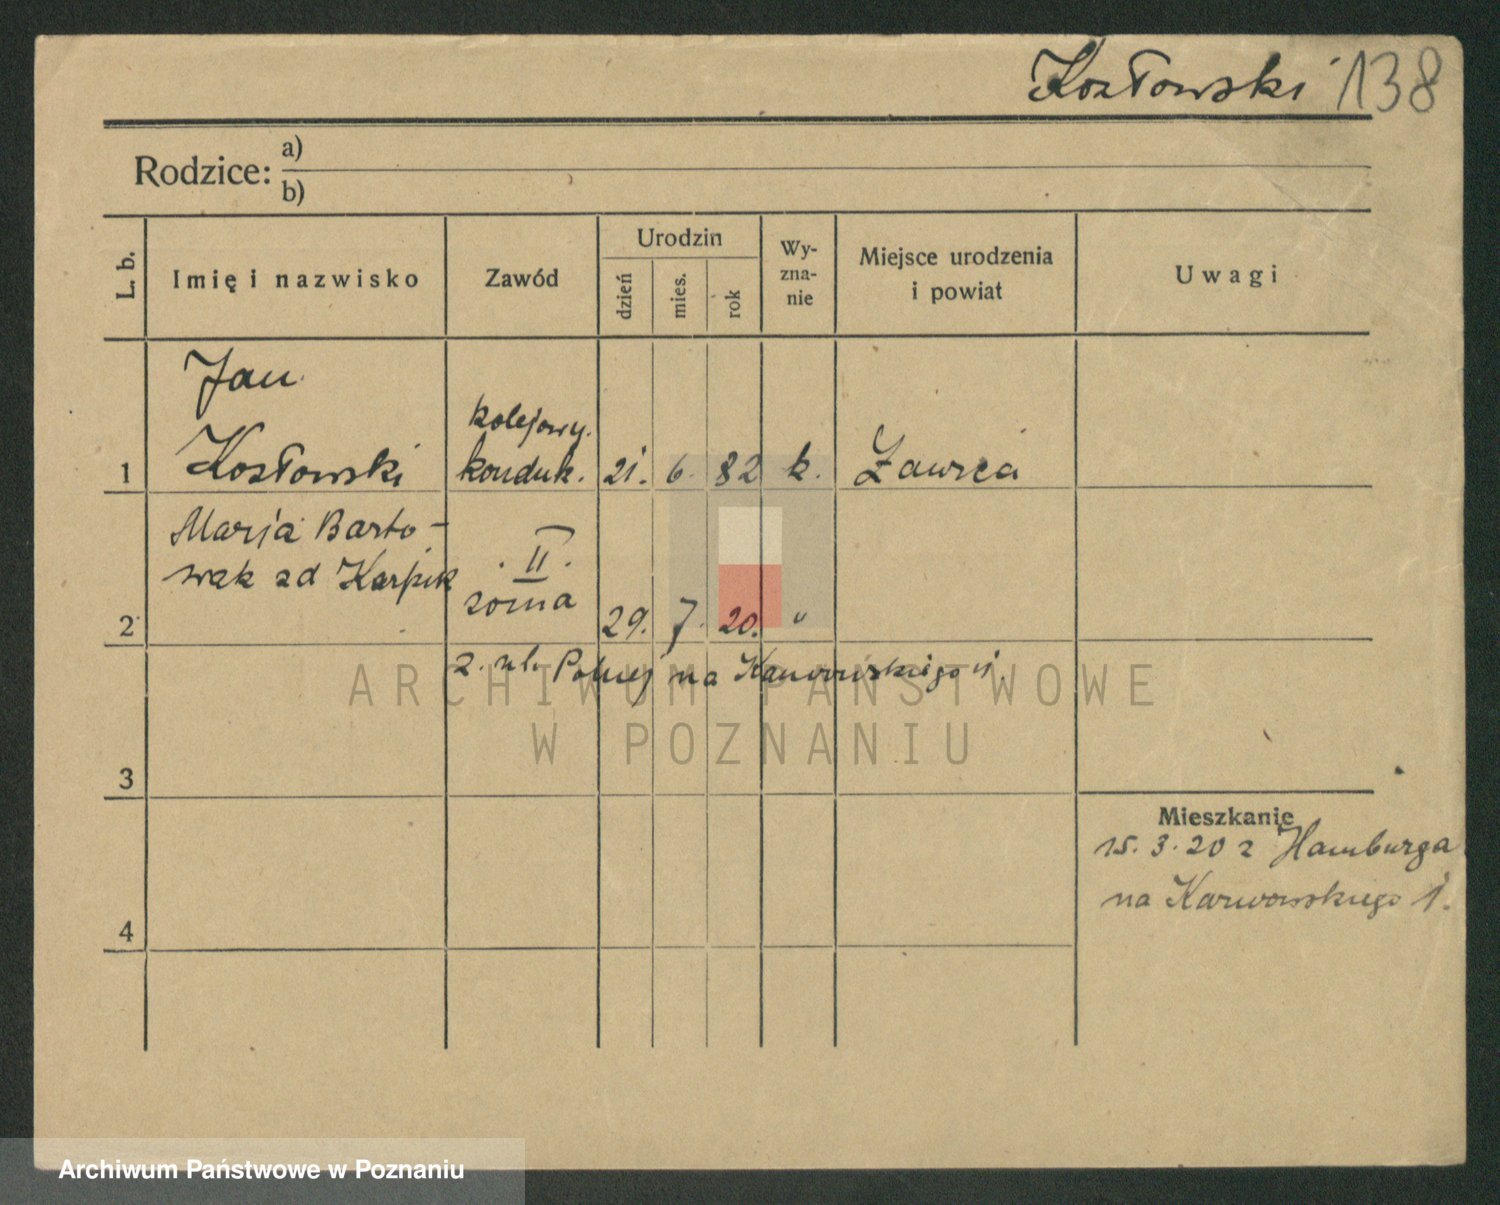 Kozłowski 138
Rodzice: a)
b)
L. b.
Imię i nazwisko
Zawód
Urodzin
dzień
mies.
rok
Wy-
zna-
nie
Miejsce urodzenia
i powiat
Uwagi
Jan
kolejowy.
1 Kozłowski konduk. 21. 6. 82 k.
Marja Barto-
wak zd
II
żona
2 29. 7. 20. "
z. ul. Polnej na Karwowskiego 1.
ARCHIWUM PAŃSTWOWE
W POZNANIU
3
Mieszkanie
15. 3. 20 z Hamburga
na Karwowskiego 1.
4
Archiwum Państwowe w Poznaniu